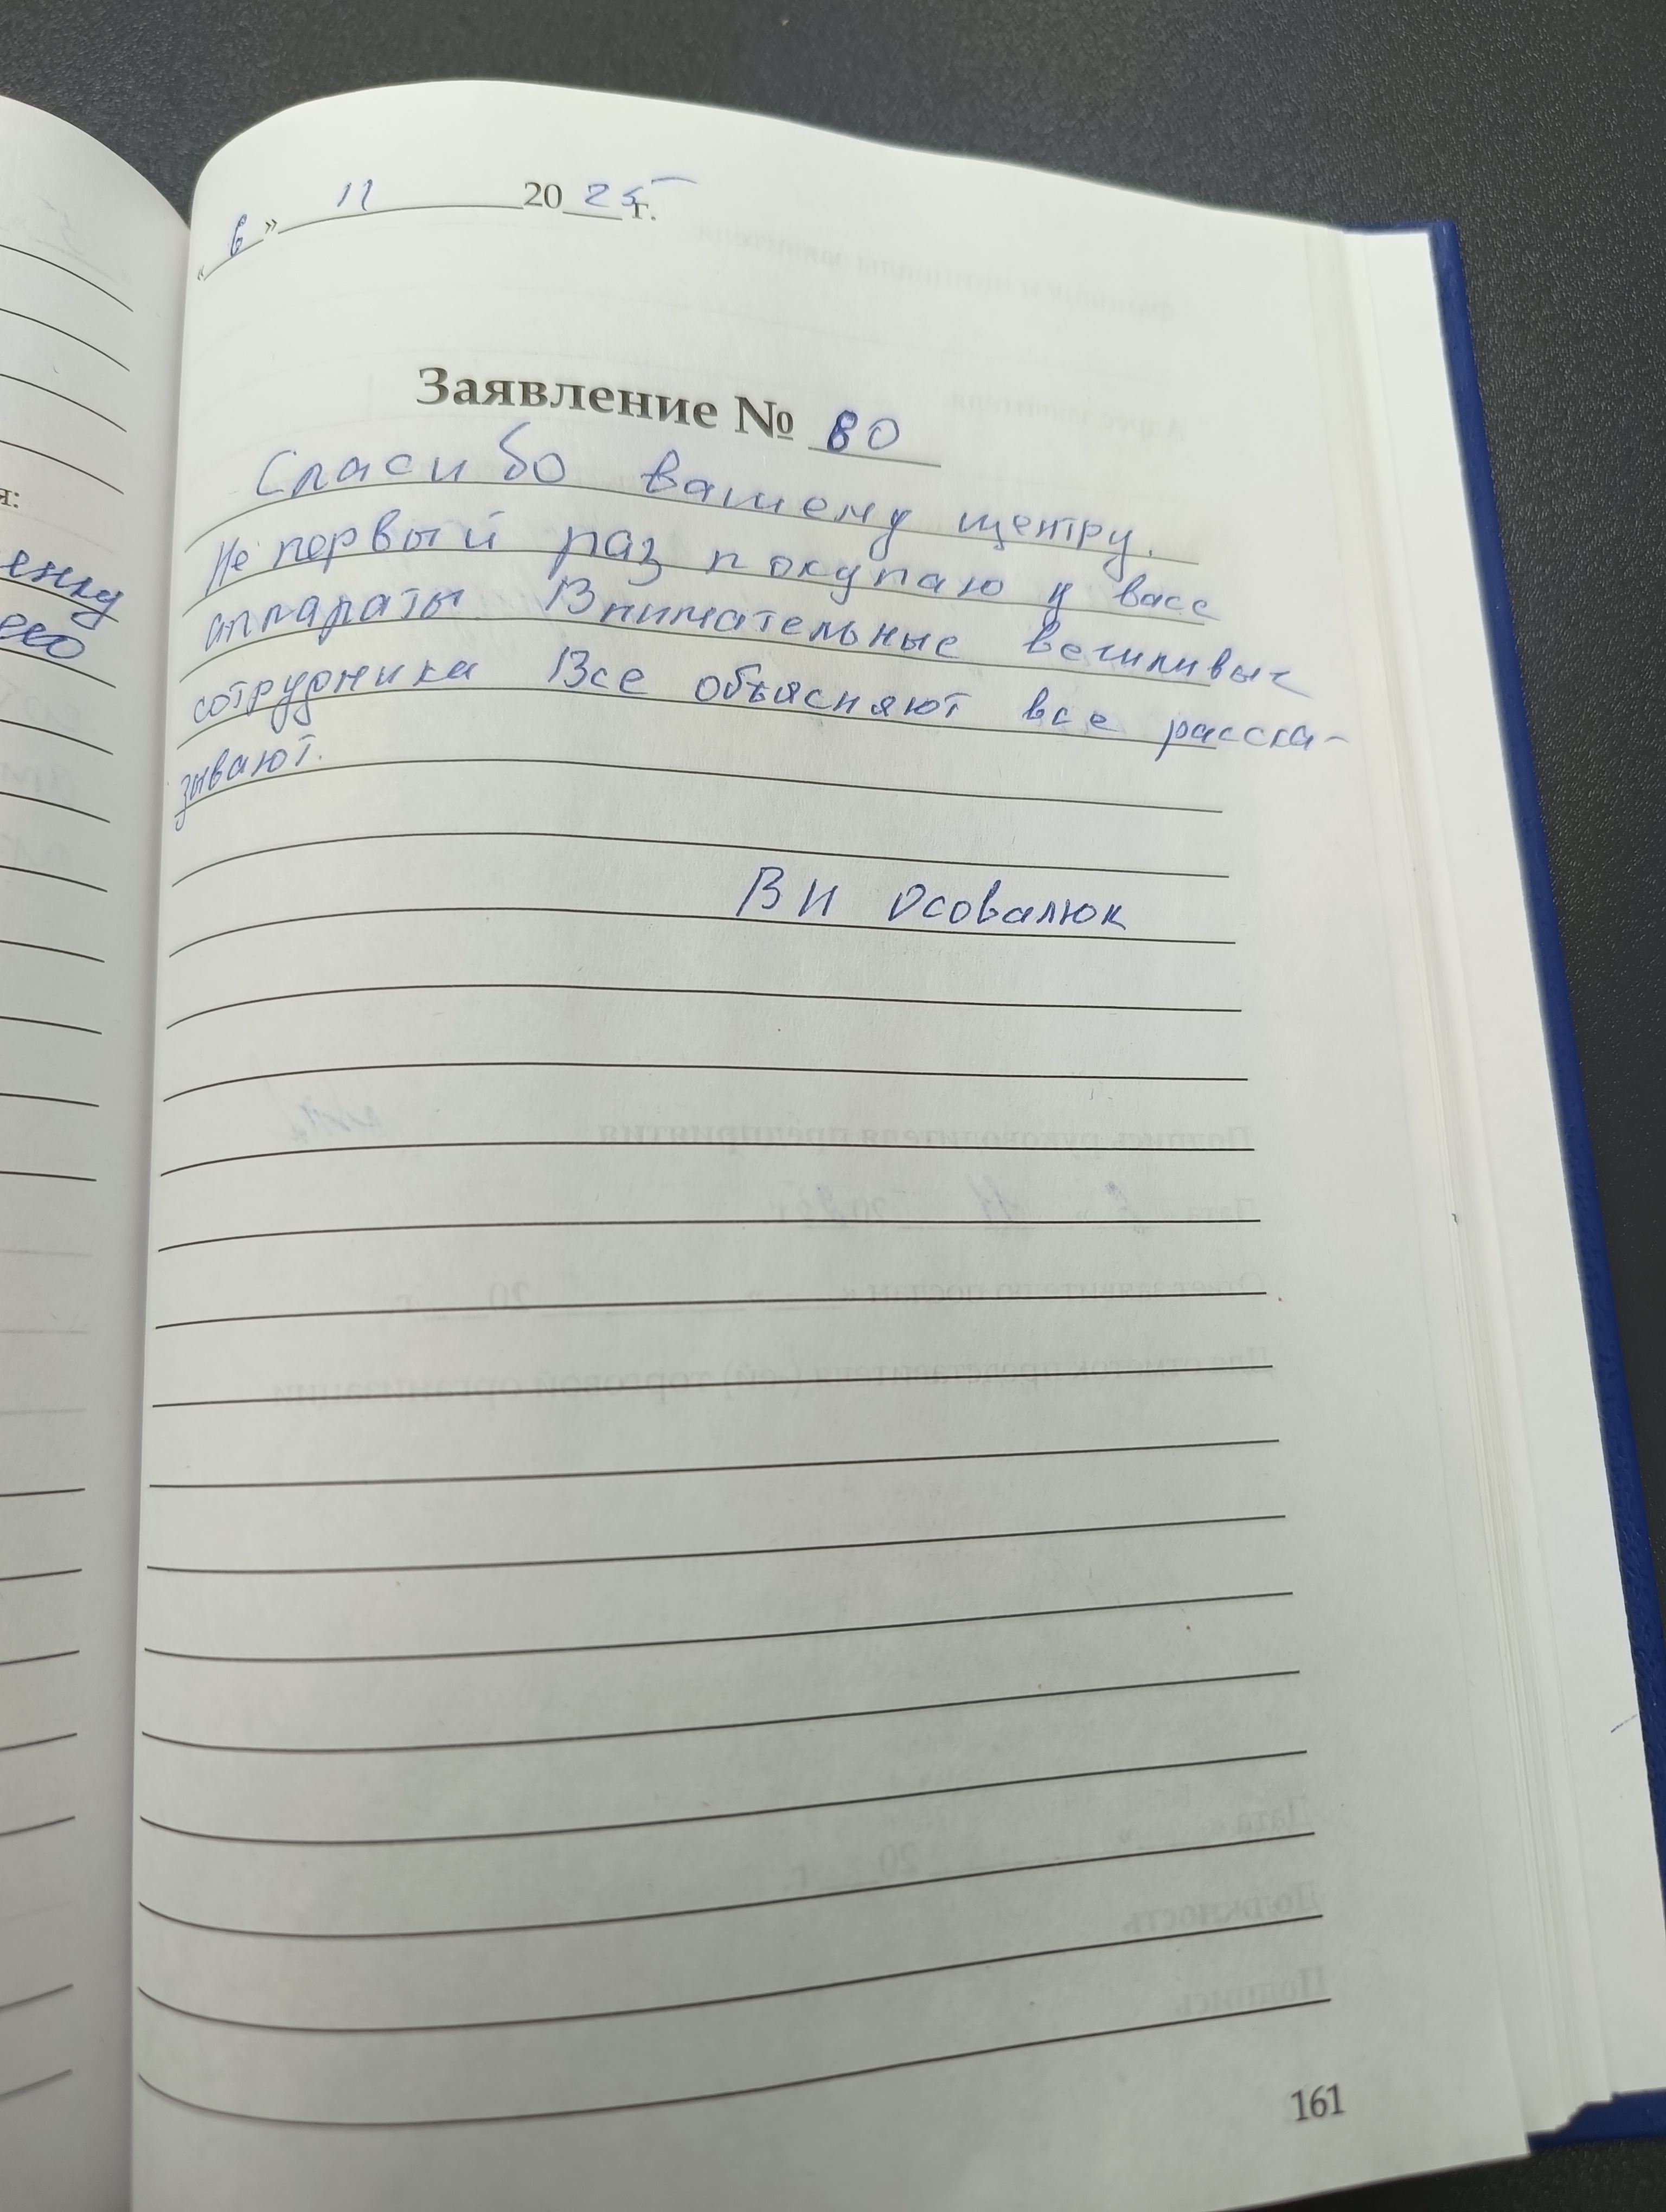 «6» 11 2025 г.
Заявление № 80
Спасибо вашему щентру.
Не первый раз покупаю у васс
аппараты Внимательные вежливые
сотрудника Все объясняют все расска-
зывают.
ВИ Осовалюк
161
я:
енку